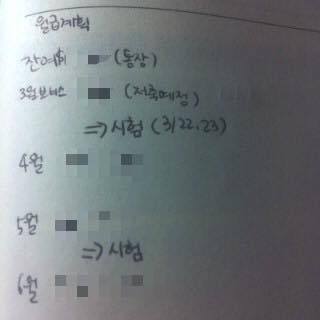 월급계획
잔여 (통장)
3월 보너스 (저축예정)
⇒ 시험 (3/22, 23)
4월
5월
⇒ 시험
6월